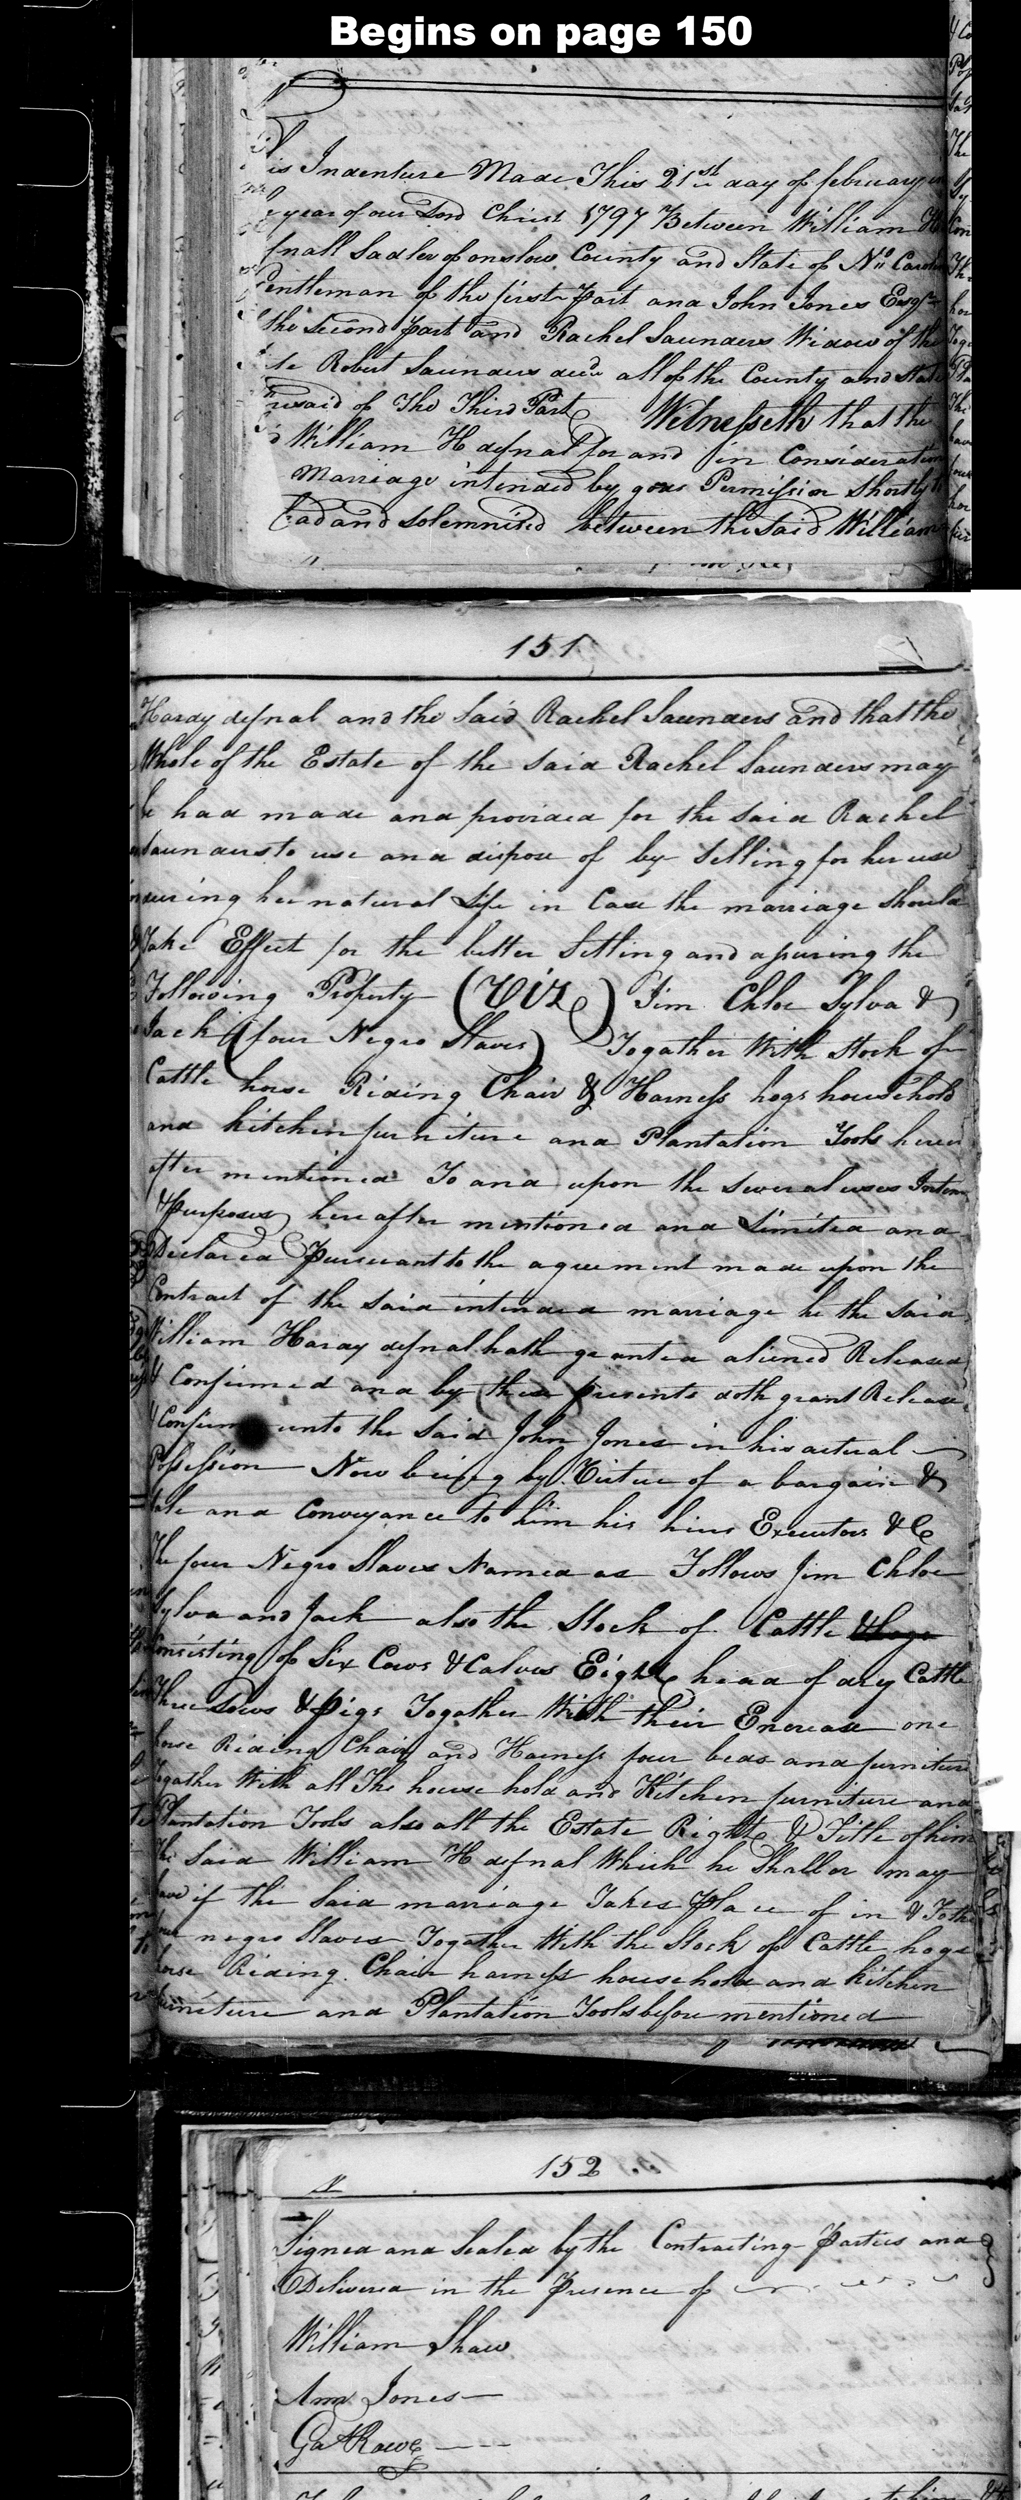 Begins on page 150
is Indenture Made This 21st day of february in
year of our Lord Christ 1797 Between William H
fnall Sadler of onslow County and State of No Caroli
Gentleman of the first Part and John Jones Esqr
the Second Part and Rachel Saunders Widow of the
te Robert Saunders decd all of the County and State
resaid of The Third Part Witnesseth that the
d William H defnal for and in Consideration
Marriage intended by gods Permission Shortly
had and Solemnised between the Said William
151
Hardy defnal and the Said Rachel Saunders and that the
Whole of the Estate of the Said Rachel Saunders may
be had made and provided for the Said Rachel
Saunders to use and dispose of by Selling for her use
during her natural Life in Case the marriage Should
Take Effect for the better Setling and assuring the
Following Property (Viz) Jim Chloe Sylva &
Jack (four Negro Slaves) Togather With Stock of
Cattle horse Riding Chair & Harness hogs household
and kitchen furniture and Plantation Tools herein
after mentioned To and upon the Several uses Inten
& Purposes hereafter mentioned and Limited and
Declared Pursuant to the agreement made upon the
Contract of the Said intended marriage he the Said
William Hardy defnal hath granted aliened Released
& Confirmed and by these presents doth grant Release
& Confirm unto the Said John Jones in his actual
Possession Now being by Virtue of a bargain &
Sale and Conveyance to him his heirs Executors &C
The four Negro Slaves Named as Follows Jim Chloe
Sylva and Jack also the Stock of Cattle & hogs
Consisting of Six Cows & Calves Eight head of dry Cattle
Three Sows & Pigs Togather With their Encrease one
horse Riding Chair and Harness four beds and furniture
Togather With all The house hold and Kitchen furniture and
Plantation Tools also all the Estate Right & Title of him
the Said William H defnal Which he Shall or may
have if the Said marriage Takes Place of in & To the
four negro Slaves Togather With the Stock of Cattle hogs
horse Riding Chair harness household and kitchen
furniture and Plantation Tools before mentioned
152
Signed and Sealed by the Contracting Parties and
Delivered in the Presence of
William Shaw
Ann Jones